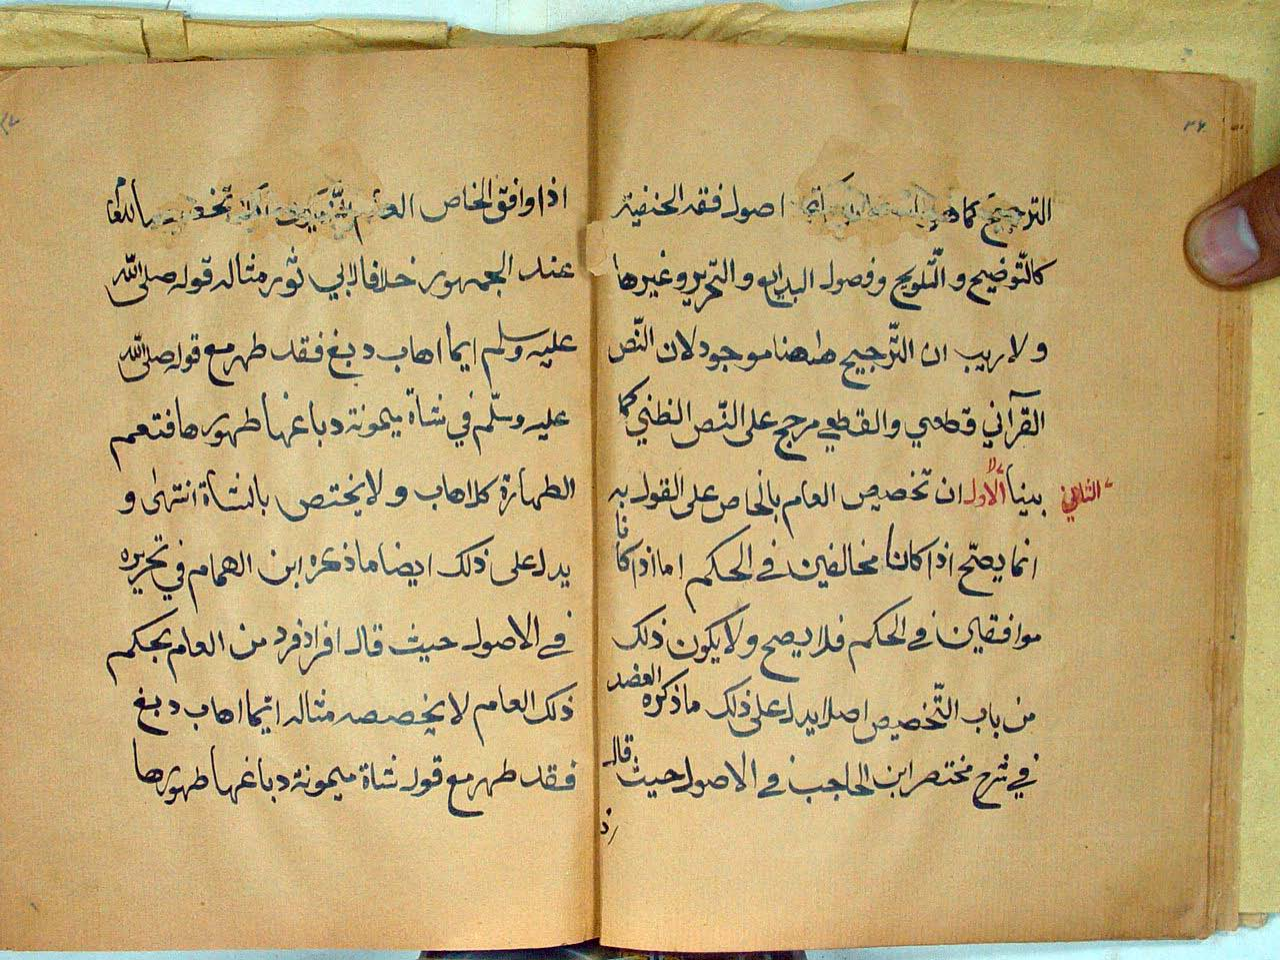 ٣٦
الترجيح كما اصول فقه الحنفية
كالتّوضيح والتّلويح وفصول البدايع والتحرير وغيرها
ولا ريب ان التّرجيح ههنا موجود لان النّص
القرآني قطعي والقطعي مرجح على النّص الظني كما
بينا الاول ان تخصيص العام بالخاص على القول به
الثاني
انما يصحّ اذا كانا مخالفين في الحكم اما اذا كانا
موافقين في الحكم فلا يصح ولا يكون ذلك
من باب التّخصيص اصلا يدل على ذلك ما ذكره العضد
في شرح مختصر ابن الحاجب في الاصول حيث قال
٣٧
اذا وافق الخاص العام تخصيصا للعام
عند الجمهور خلافا لابي ثور مثاله قوله صلى الله
عليه وسلم ايما اهاب دبغ فقد طهر مع قوله صلى الله
عليه وسلّم في شاة ميمونة دباغها طهورها فتعم
الطهارة كل اهاب ولا يختص بالشاة انتهى و
يدل على ذلك ايضا ما ذكره ابن الهمام في تحريره
في الاصول حيث قال افراد فرد من العام بحكم
ذلك العام لا يخصصه مثاله ايّما اهاب دبغ
فقد طهر مع قوله شاة ميمونة دباغها طهورها